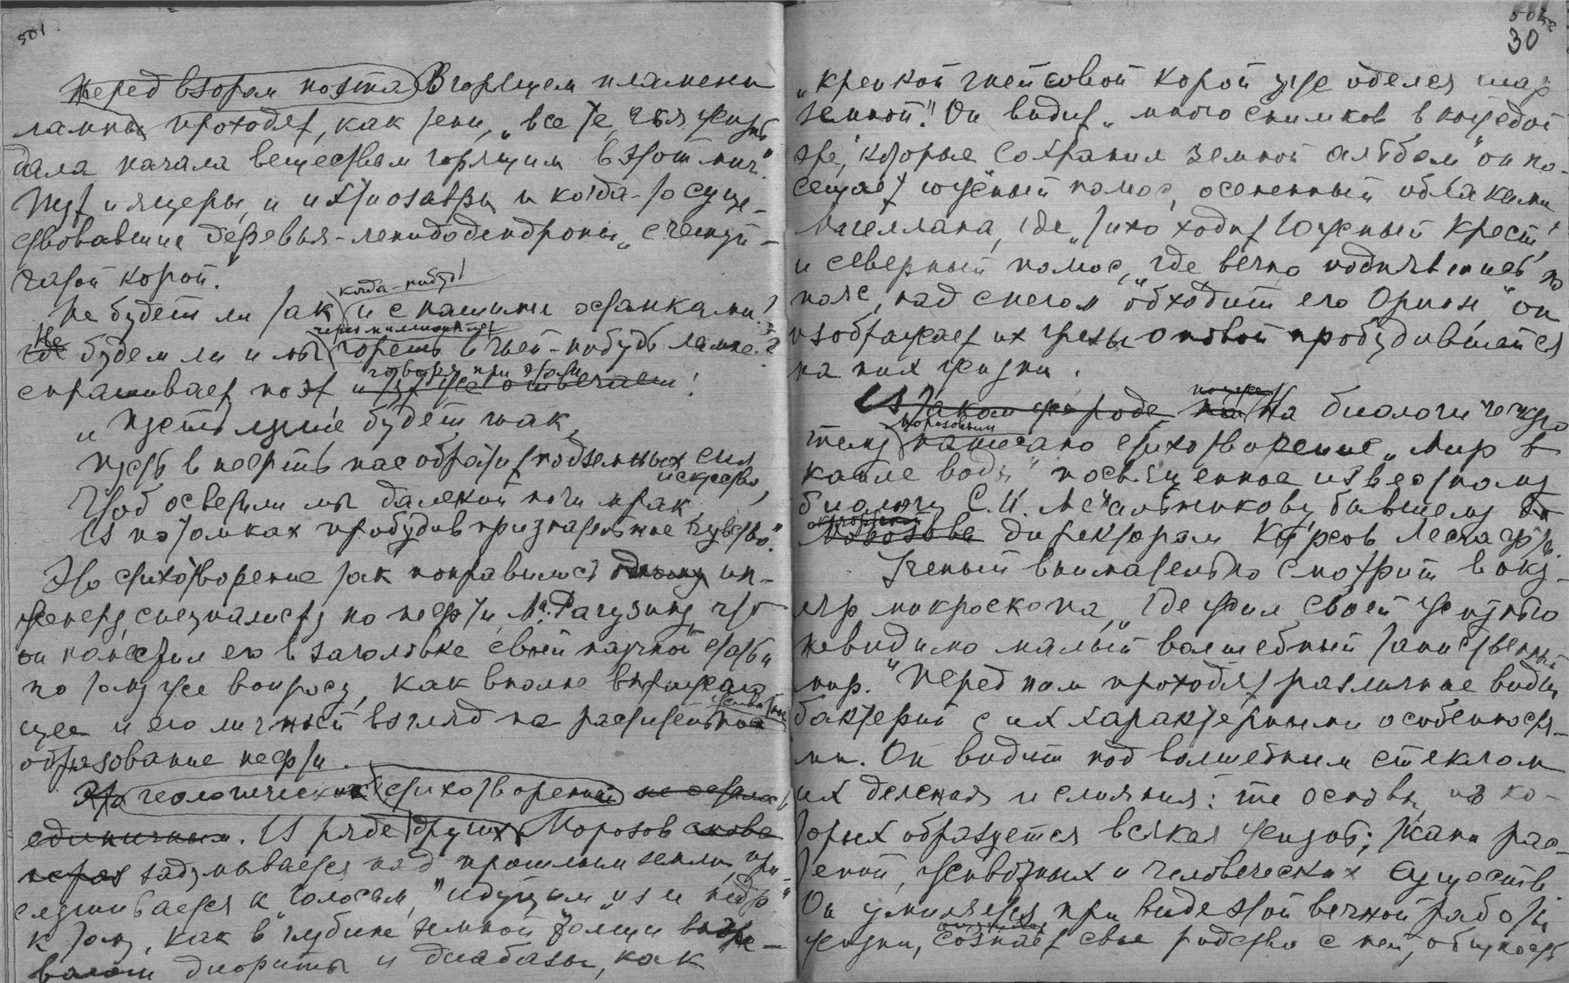 501
Перед взором поэта В горящем пламени
лампы проходят, как тени, "все те, чья жизнь
дала начала веществам горящим в этот миг".
Тут и ящеры, и ихтиозавры и когда-то суще-
ствовавшие деревья-лепидодендроны "с чешуй-
чатой корой."
когда-нибудь
Не будет ли так и с нашими останками?
через миллион лет
Не будем ли и мы гореть в чьей-нибудь лампе?
спрашивает поэт и тут же отвечает!
говоря при этом
"Пусть лучше будет так,
Пусть в нефть нас обратит подземных сил
искусство,
Чтоб осветили мы далекой ночи мрак,
И в потомках пробудив признательное чувство".
Это стихотворение так понравилось одному ин-
женеру, специалисту по нефти, М. Рагузину, что
он поместил его в заголовке своей научной статьи
по тому же вопросу, как вполне выражаю-
щее и его личный взгляд на растительное
образование нефти.
геологическое стихотворение не осталось
единичным. В ряде других Морозов снова
задумывается над прошлым земли, при-
слушивается к голосам, "идущим из недр"
к тому, как в глубине земной толщи
диориты и диабазы, как
502
30
"крепкой гнейсовой корой уже оделся шар
земной". Он видит "много снимков в каждой
эре, которые сохранил земной альбом" он по-
сещает южный полюс, осененный облаками
Магеллана, где "тихо ходит Южный Крест"
и северный полюс, "где вечно подлинявшись по
поясе, над снегом обходит его Орион" он
изображает их грезы о новой пробудившейся
на них жизни.
В таком же роде На биологическую
тему написано стихотворение "Мир в
Морозовым
капле воды", посвященное известному
биологу С. И. Метальникову бывшему
директором Курсов Лесгафта.
Ученый внимательно смотрит в оку-
ляр микроскопа, "где жил своей жизнью
невидимо малый волшебный таинственный
мир." Перед ним проходят различные виды
бактерий с их характерными особенностя-
ми. Он видит под волшебным стеклом
их деления и слияния: те основы из ко-
торых образуется всякая жизнь; ткани рас-
тений, животных и человеческих существ.
Он умиляется при виде этой вечной работы
жизни, сознает свое родство с ней, общность